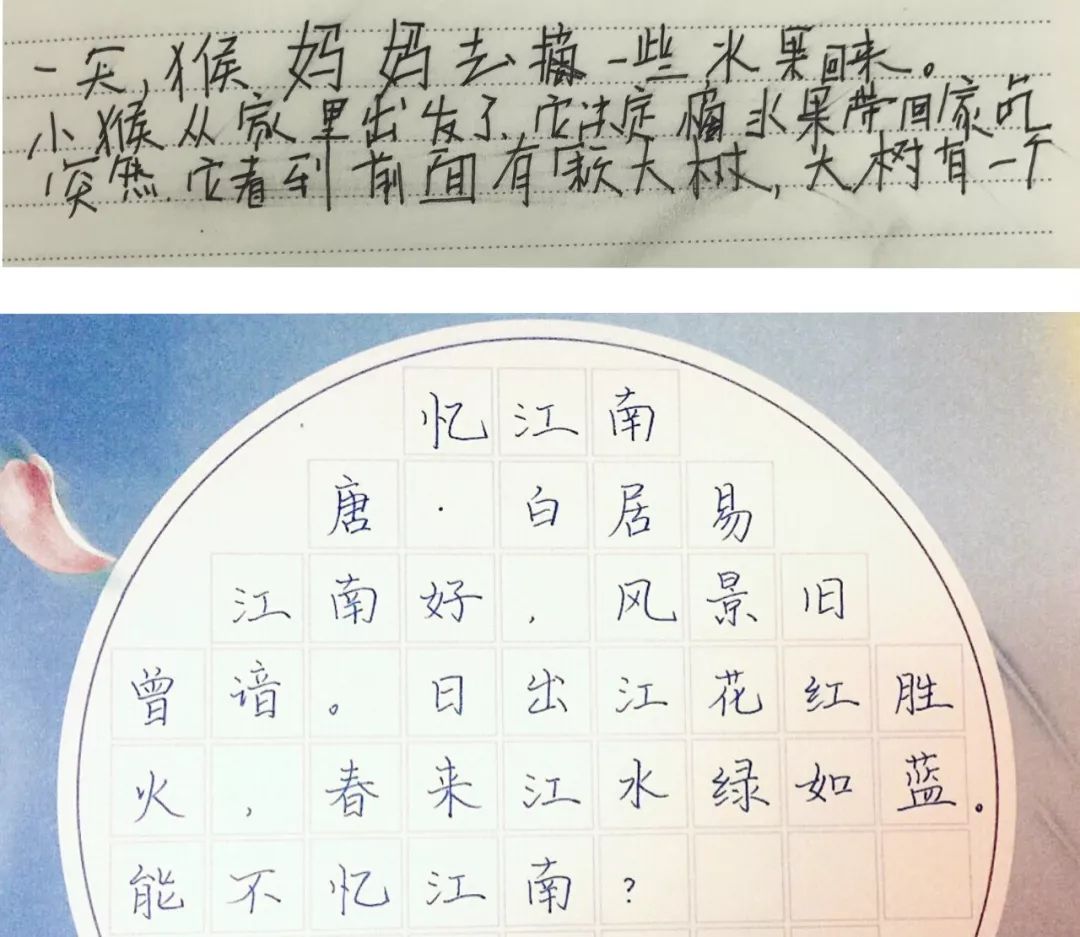 一天,猴妈妈去摘一些水果回来。
小猴从家里出发了,它决定摘水果带回家吃
突然它看到前面有颗大树,大树有一个
忆江南
唐·白居易
江南好,风景旧
曾谙。日出江花红胜
火,春来江水绿如蓝。
能不忆江南?